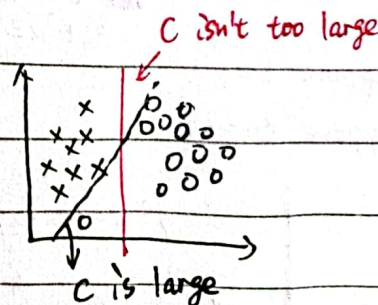 C isn't too large
C is large